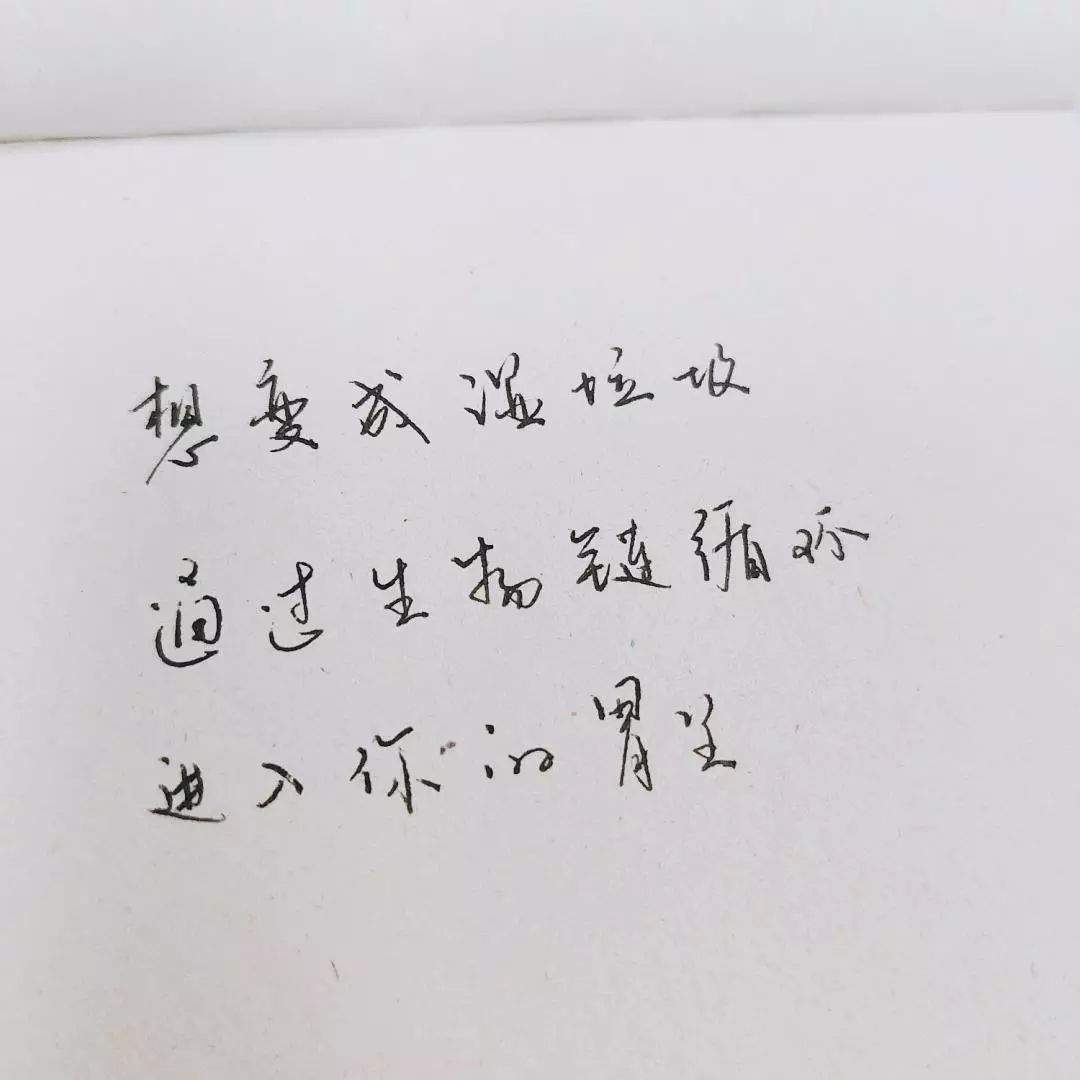 想变成湿垃圾
通过生物链循环
进入你的胃里